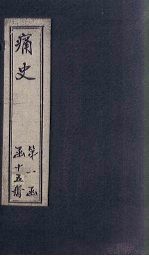 痛史
第一函
函十五冊